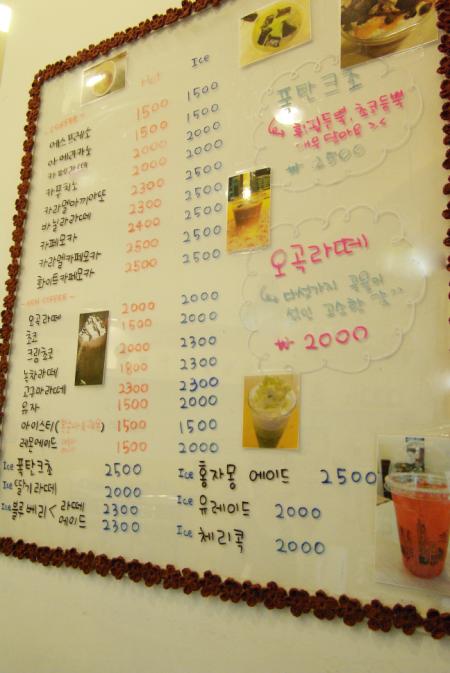 Hot Ice
COFFEE
에스프레소 1500 1500
아메리카노 1500 1500
카페라떼 2000 2000
카푸치노 2000 2000
카라멜마끼아또 2300 2500
바닐라라떼 2300 2500
카페모카 2400 2500
카라멜카페모카 2500 2500
화이트카페모카 2500 2500
NON COFFEE
오곡라떼 2000 2000
초코 1500 2000
크람초코 2000
녹차라떼 2000 2300
고구마라떼 1800 2300
유자 2300 2300
아이스티 1500 1500
레몬에이드 1500 2000
Ice 폭탄크초 2500
Ice 딸기라떼 2000
Ice 블루베리 < 라떼 2300
에이드 2300
Ice 홍자몽 에이드 2500
Ice 유레이드 2000
Ice 체리콕 2000
폭탄크초
휘핑듬뿍, 초코듬뿍
₩ 2500
오곡라떼
다섯가지 곡물이
섞인 고소한 맛
₩ 2000